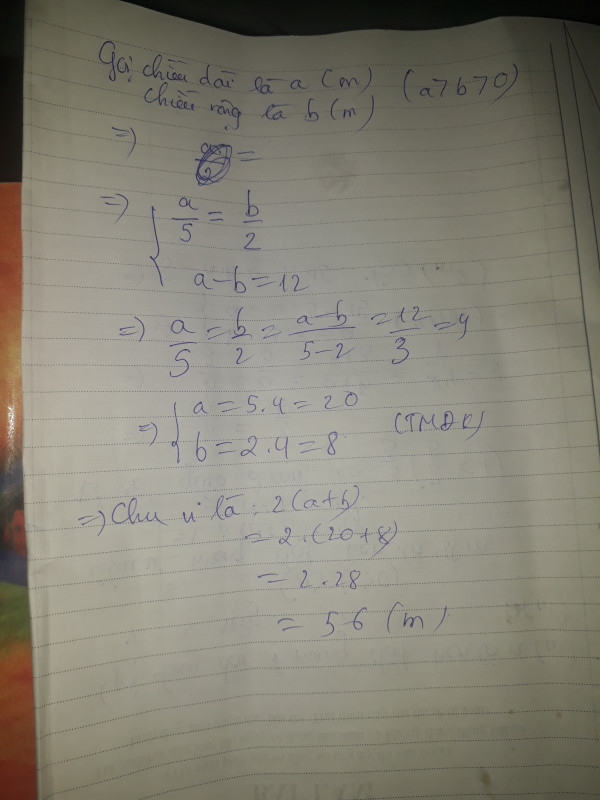 Gọi chiều dài là a (m) (a>b>0)
chiều rộng là b (m)
=>
=> { a/5 = b/2
a-b=12
=> a/5 = b/2 = a-b/5-2 = 12/3 = 4
=> { a = 5.4 = 20
b = 2.4 = 8 (TMĐK)
=> Chu vi là: 2(a+b)
= 2.(20+8)
= 2.28
= 56 (m)